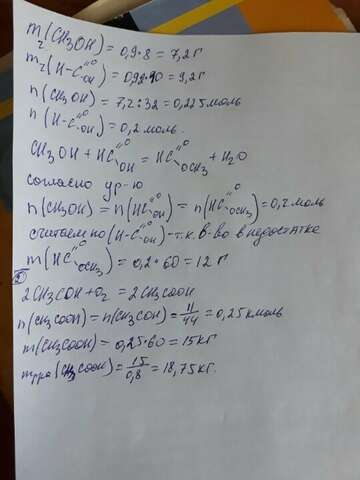 m₂(CH₃OH) = 0,9·8 = 7,2 г
m₂(H-C=O OH) = 0,92·10 = 9,2 г
n(CH₃OH) = 7,2:32 = 0,225 моль
n(H-C=O OH) = 0,2 моль.
CH₃OH + HC=O OH = HC=O OCH₃ + H₂O
согласно ур-ю
n(CH₃OH) = n(HC=O OH) = n(HC=O OCH₃) = 0,2 моль
считаем по (H-C=O OH) - т.к. в-во в недостатке
m(HC=O OCH₃) = 0,2·60 = 12 г
2CH₃COH + O₂ = 2CH₃COOH
n(CH₃COOH) = n(CH₃COH) = 11/44 = 0,25 кмоль
m(CH₃COOH) = 0,25·60 = 15 кг
mр-ра(CH₃COOH) = 15/0,8 = 18,75 кг.